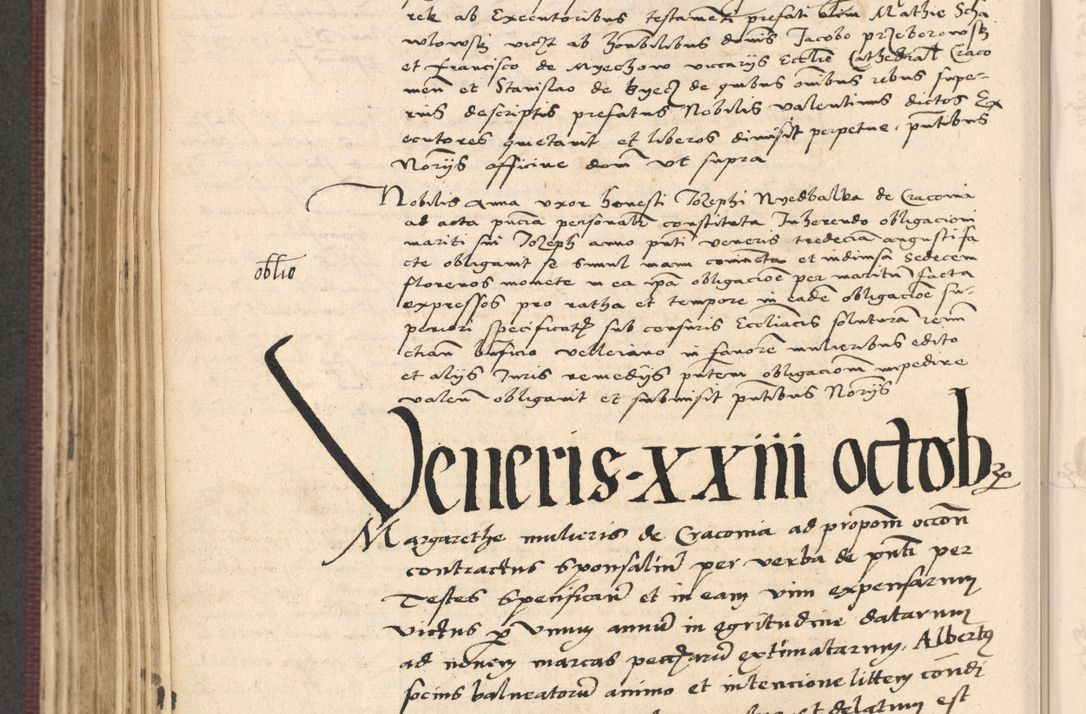 rek ab Executoribus testamenti prefati olim Mathie Scha
wlowsky vicz ab honorabilibus dominis Jacobo przeborowsky
et Francisco de Myechow vicariis Ecclie Cathedral Craco
men et Stanislao de byecz de quibus omnibus rebus supe-
rius descriptis prefatus Nobilis valentinus dictos Ex
ecutores quietavit et liberos dimisit perpetue pntibus
Norijs officine dom ut supra
Nobilis Anna uxor honesti Joseph Nyedbalka de Cracovia
ad acta pncia personalr constituta Inherendo obligacioni
mariti sui Joseph anno pnti veneris tredecia augusti fa
cte obligavit se simul manu coniuncta et indivisa Sedecem
florenos monete in ea ipa obligacioe per maritu facta
expressos pro ratha et tempore in eade obligacioe su-
periori specificatis sub censuris Eccliacis solutura renun
ctian bnficio velleiano in favore mulieribus edito
et alijs Juris remedijs pntem obligaciom impedire
valen obligavit et submisit pntibus Norijs
oblio
Veneris - xxiii octobr
Margarethe mulieris de Cracovia ad propom occon
contractus sponsaliu per verba de pnti per
Testes specifican et in eam vim expensarum
victus p unum annu in egritudine datarum
ad novem marcas peccariu extimatarum, Albertus
socius balneatoru animo et intencione littem condi
et delatum est